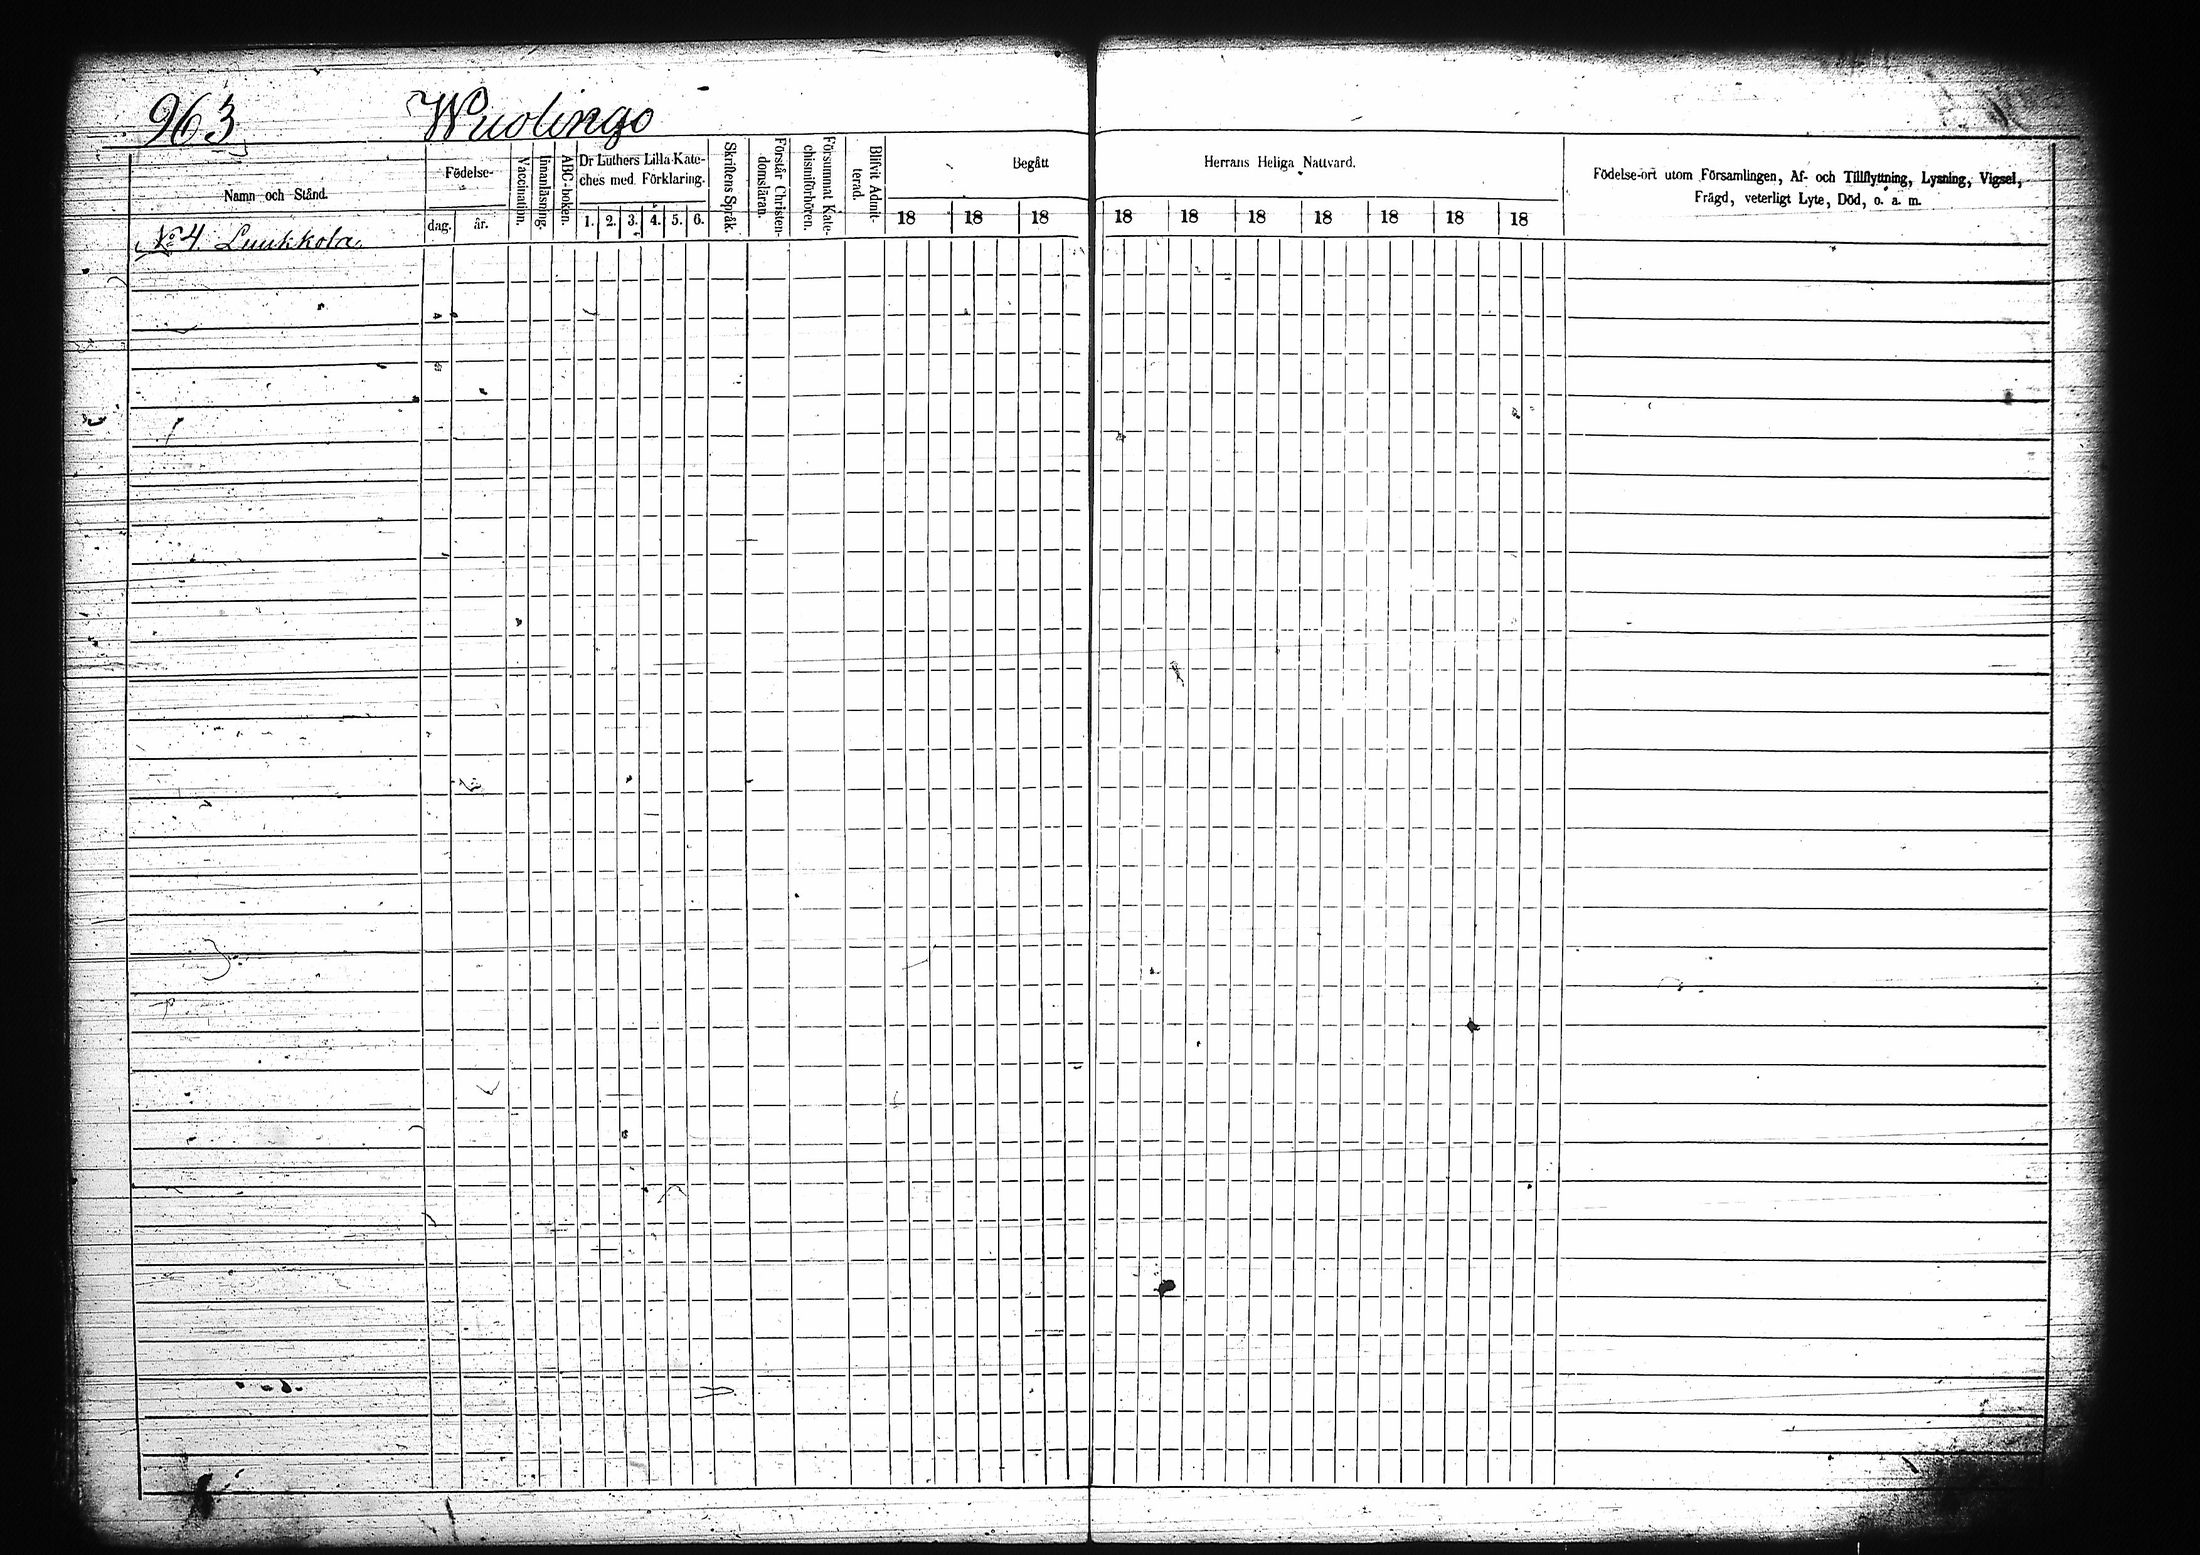 963
Wuolingo
Namn och Stånd.
Födelse-
dag.
år.
Vaccination.
Innanläsning.
ABC-boken.
Dr Luthers Lilla Kate-
ches med Förklaring.
1. 2. 3. 4. 5. 6.
Skriftens Språk.
Förstår Christen-
domsläran.
Försummat Kate-
chismiförhören.
Blifvit Admit-
terad.
Begått Herrans Heliga Nattvard.
18 18 18 18 18 18 18 18 18 18
Födelse-ort utom Församlingen, Af- och Tillflyttning, Lysning, Vigsel,
Frägd, veterligt Lyte, Död, o. a. m.
No 4. Luukkola.